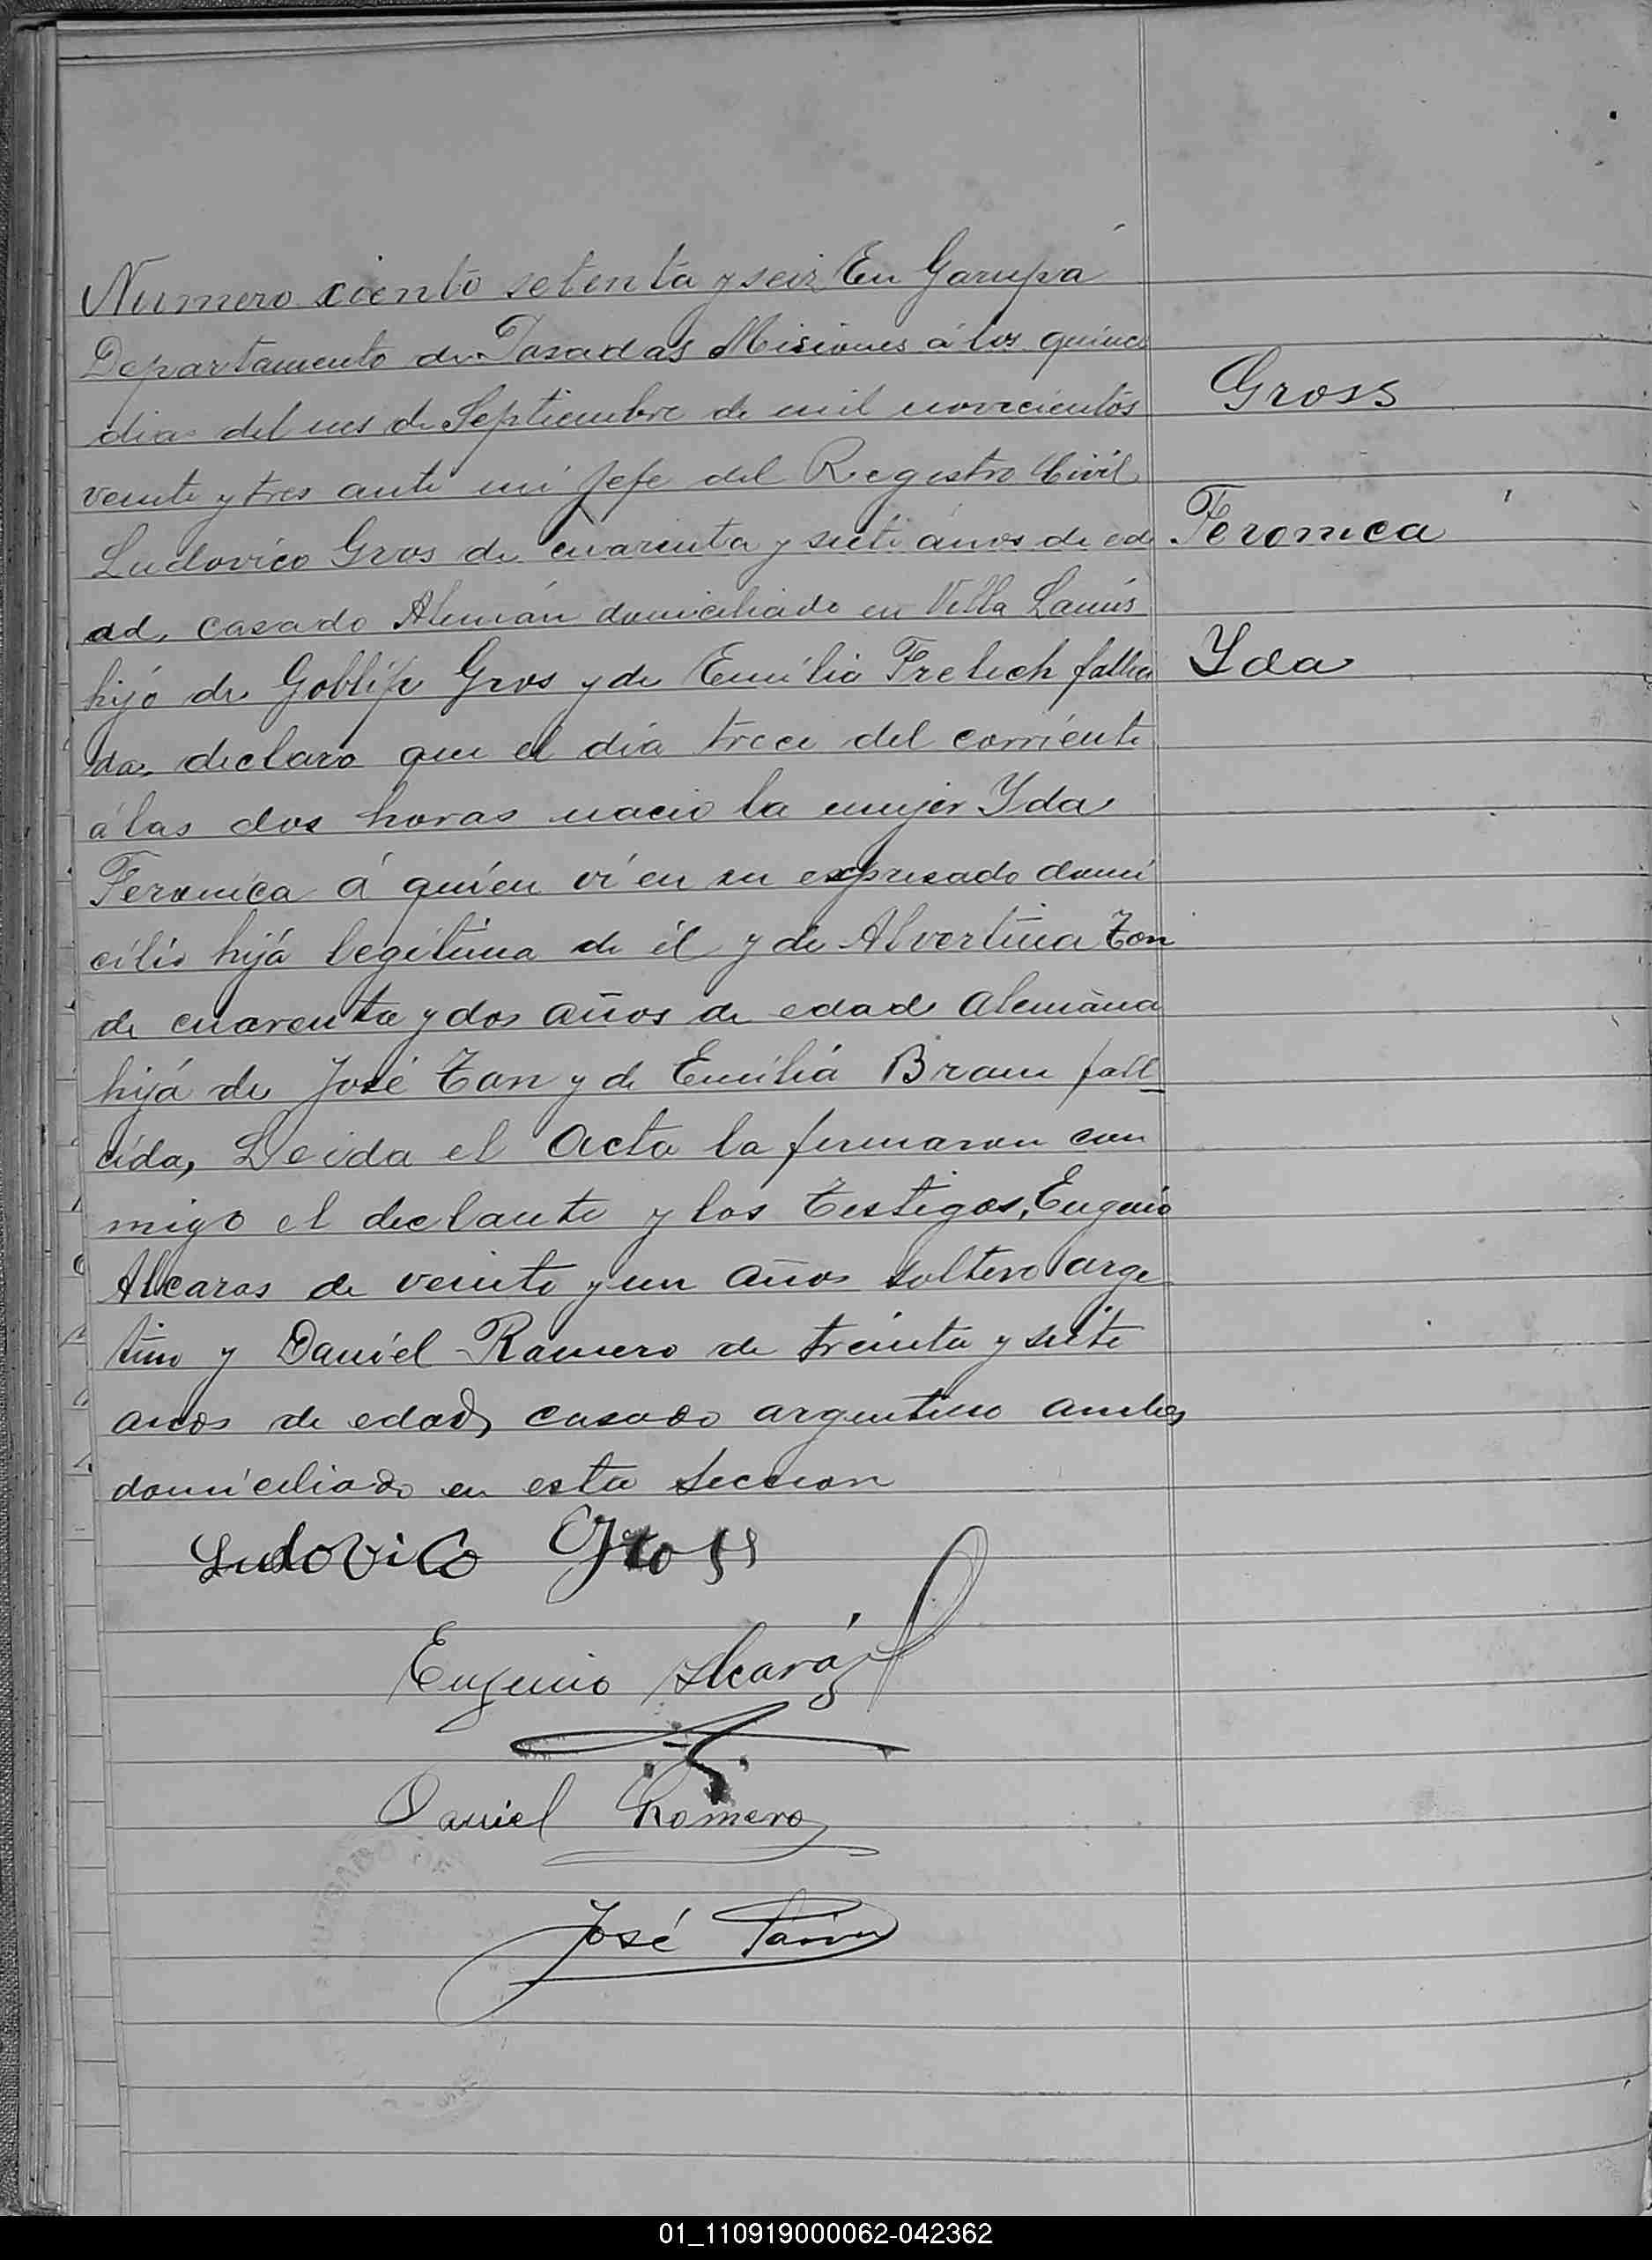 Numero ciento setenta y seiz En Garupá
Departamento de Posadas Misiones á los quince
dias del mes de Septiembre de mil novecientos
veinte y tres ante mi Jefe del Registro Civil
Ludovico Gros de cuarenta y siete años de ed
ad, casado Alemán domiciliado en Villa Lanús
hijo de Goblife Gros y de Emilia Frelich falleci
da, declaro que el dia trece del corriente
á las dos horas nacio la mujer Yda
Feronica á quien ví en su expresado domi
cilio hijá legitima de él y de Alvertina Ton
de cuarenta y dos años de edad alemána
hijá de José Tan y de Emilia Bram fall
cida, Leida el Acta la firmaron con
migo el declante y los testigos, Eugenio
Alcaras de veinte y un años soltero arge
tino y Daniel Romero de treinta y siete
anos de edad, casado argentino ambos
domiciliado en esta seccion
Ludovico Gross
Eugenio Alcaráz
Daniel Romero
José
Gross
Feronica
Yda
01_110919000062-042362